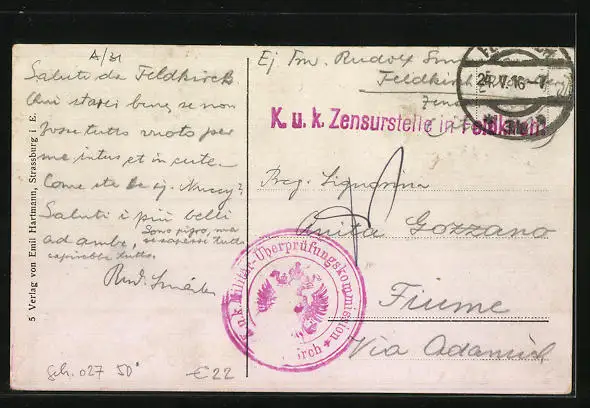 A/31
Saluti da Feldkirch
Qui starei bene, se non
fosse tutto vuoto per
me intus et in cute.
Come sta la sig. Nuccy?
Saluti i più belli
ad ambe,
Sono pigro, ma
se sapessi tutto
capirebbe tutto.
Rud.
5 Verlag von Emil Hartmann, Strassburg i. E.
Rudolf
Feldkirch
24.V.16-7
K. u. k. Zensurstelle in Feldkirch.
Preg. Signorina
Anita Gozzano
Fiume
Via Adamich
K.u.k. Militär-Überprüfungskommission
Feldkirch
027 50
€ 22